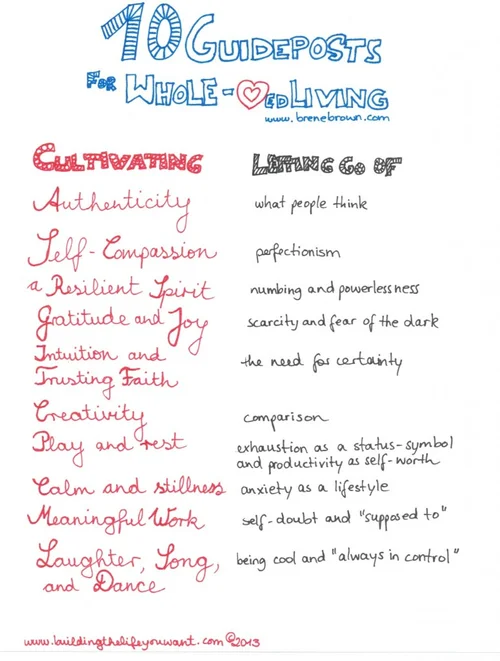 10 GUIDEPOSTS
FOR WHOLE-♡ED LIVING
www.brenebrown.com
CULTIVATING LETTING GO OF
Authenticity what people think
Self-Compassion perfectionism
a Resilient Spirit numbing and powerlessness
Gratitude and Joy scarcity and fear of the dark
Intuition and the need for certainty
Trusting Faith
Creativity comparison
Play and rest exhaustion as a status-symbol
and productivity as self-worth
Calm and stillness anxiety as a lifestyle
Meaningful Work self-doubt and "supposed to"
Laughter, Song, being cool and "always in control"
and Dance
www.buildingthelifeyouwant.com ©2013